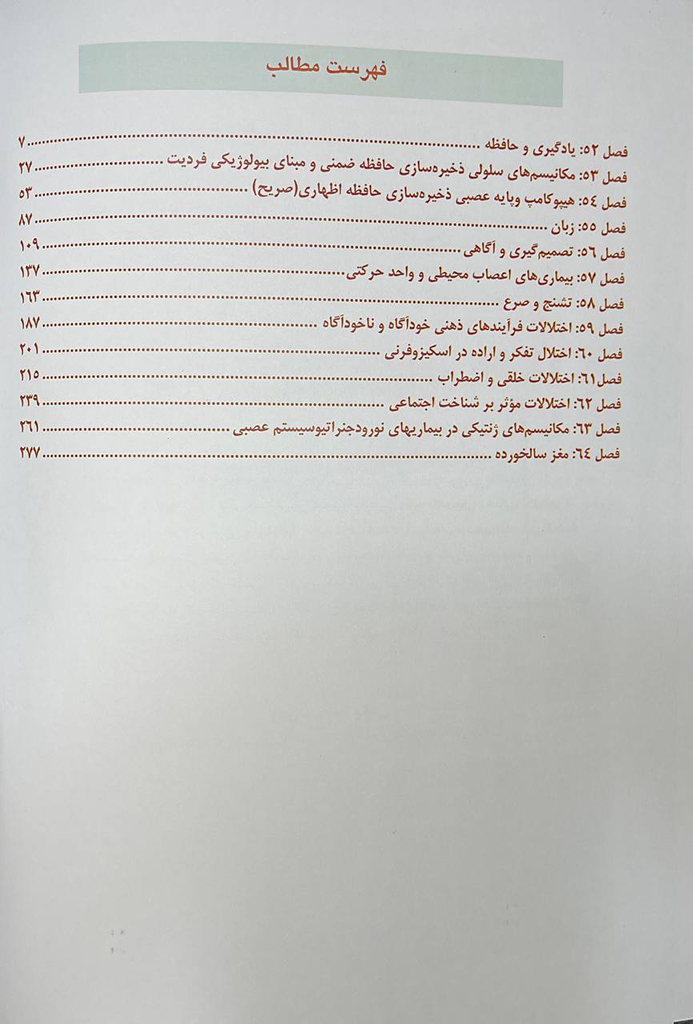 فهرست مطالب
فصل ٥٢: یادگیری و حافظه ........ ٧
فصل ٥٣: مکانیسم‌های سلولی ذخیره‌سازی حافظه ضمنی و مبنای بیولوژیکی فردیت ........ ٢٧
فصل ٥٤: هیپوکامپ وپایه عصبی ذخیره‌سازی حافظه اظهاری(صریح) ........ ٥٣
فصل ٥٥: زبان ........ ٨٧
فصل ٥٦: تصمیم‌گیری و آگاهی ........ ١٠٩
فصل ٥٧: بیماری‌های اعصاب محیطی و واحد حرکتی ........ ١٣٧
فصل ٥٨: تشنج و صرع ........ ١٦٣
فصل ٥٩: اختلالات فرآیندهای ذهنی خودآگاه و ناخودآگاه ........ ١٨٧
فصل ٦٠: اختلال تفکر و اراده در اسکیزوفرنی ........ ٢٠١
فصل٦١: اختلالات خلقی و اضطراب ........ ٢١٥
فصل ٦٢: اختلالات مؤثر بر شناخت اجتماعی ........ ٢٣٩
فصل ٦٣: مکانیسم‌های ژنتیکی در بیماریهای نورودجنراتیوسیستم عصبی ........ ٢٦١
فصل ٦٤: مغز سالخورده ........ ٢٧٧